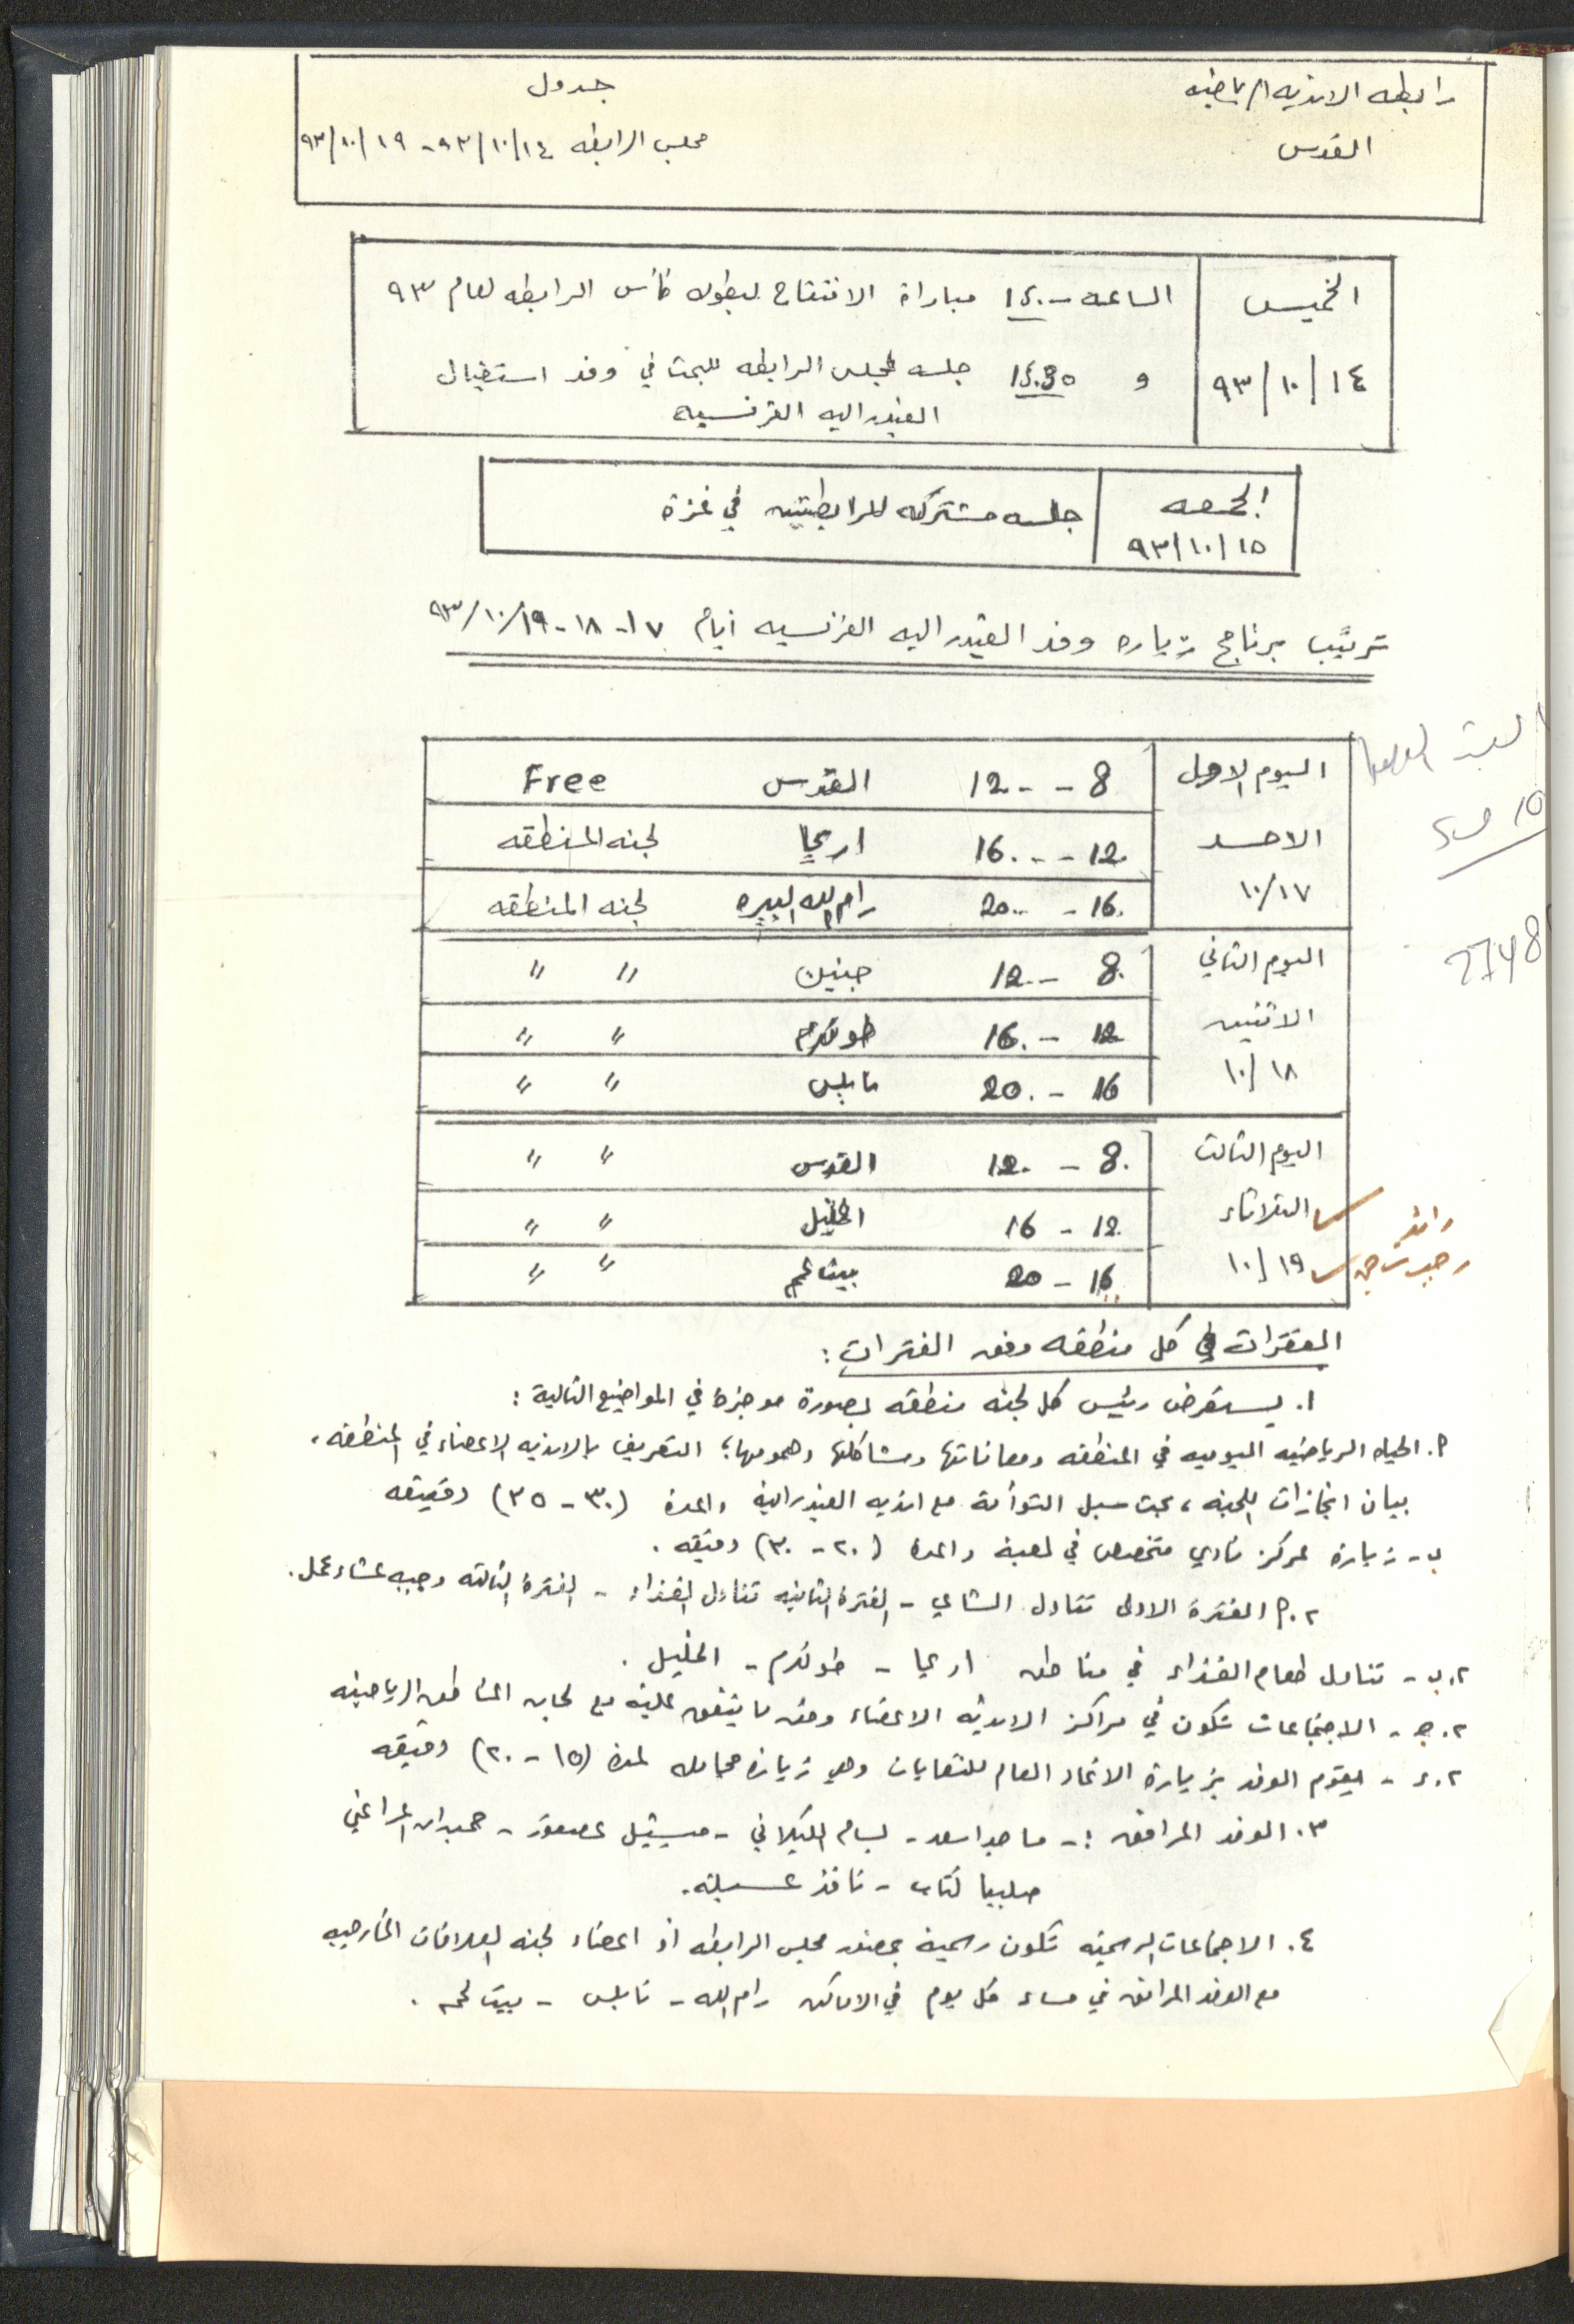 رابطه الانديه الرياضيه
جدول
القدس
مجلس الرابطه ٩٣/١٠/١٤ - ٩٣/١٠/١٩
الخميس
٩٣/١٠/١٤
الساعه مباراة الافتتاح لبطوله كأس الرابطه لعام ٩٣
و جلسه لمجلس الرابطه للبحث في وفد استقبال
الفيدراليه الفرنسيه
الجمعه
٩٣/١٠/١٥
جلسه مشتركه للرابطتين في غزة
ترتيب برنامج زياره وفد الفيدراليه الفرنسيه ايام ١٧-١٨-٩٣/١٠/١٩
اليوم الاول
8 - - 12 القدس Free
الاحد
12 - - 16 اريحا لجنه المنطقه
١٠/١٧
16 - 20 رام الله البيره لجنه المنطقه
اليوم الثاني
8 - 12 جنين " "
الاثنين
12 - 16 طولكرم " "
١٠/١٨
16 - 20 نابلس " "
اليوم الثالث
8 - 12 القدس " "
الثلاثاء
12 - 16 الخليل " "
١٠/١٩
16 - 20 بيت لحم " "
2748
الفقرات في كل منطقه وفق الفترات :
١. يستعرض رئيس كل لجنه منطقه بصورة موجزة في المواضيع التالية :
أ. الحياه الرياضيه اليوميه في المنطقه ومعاناتها ومشاكلها وهمومها، التعريف بالانديه الاعضاء في المنطقه،
بيان انجازات اللجنه، بحث سبل التوأمة مع انديه الفيدراليه والمدة (٣٠ - ٣٥) دقيقه
ب - زيارة لمركز نادي متخصص في لعبة والمدة (٢٠ - ٣٠) دقيقه .
٢. أ الفترة الاولى تناول الشاي - الفترة الثانيه تناول الغذاء - الفترة الثالثه وجبه عشاء عمل .
٢. ب - تناول طعام الغذاء في مناطق اريحا - طولكرم - الخليل .
٢. ج - الاجتماعات تكون في مراكز الانديه الاعضاء وفق ما يتفق عليه مع لجان المناطق الرياضيه
٢. د - يقوم الوفد بزيارة الاتحاد العام للنقابات وهي زيارة مجامله لمدة (١٥ - ٢٠) دقيقه
٣. الوفد المرافق :- ماجد اسعد - بسام الكيلاني - ميشيل عصفور - حمدان المراغي
صليبا كتاب - نافذ عسيله .
٤. الاجتماعات الرسميه تكون رسمية بحضور مجلس الرابطه او اعضاء لجنه العلاقات الخارجيه
مع الوفد المرافق في مساء كل يوم في الاماكن رام الله - نابلس - بيت لحم .